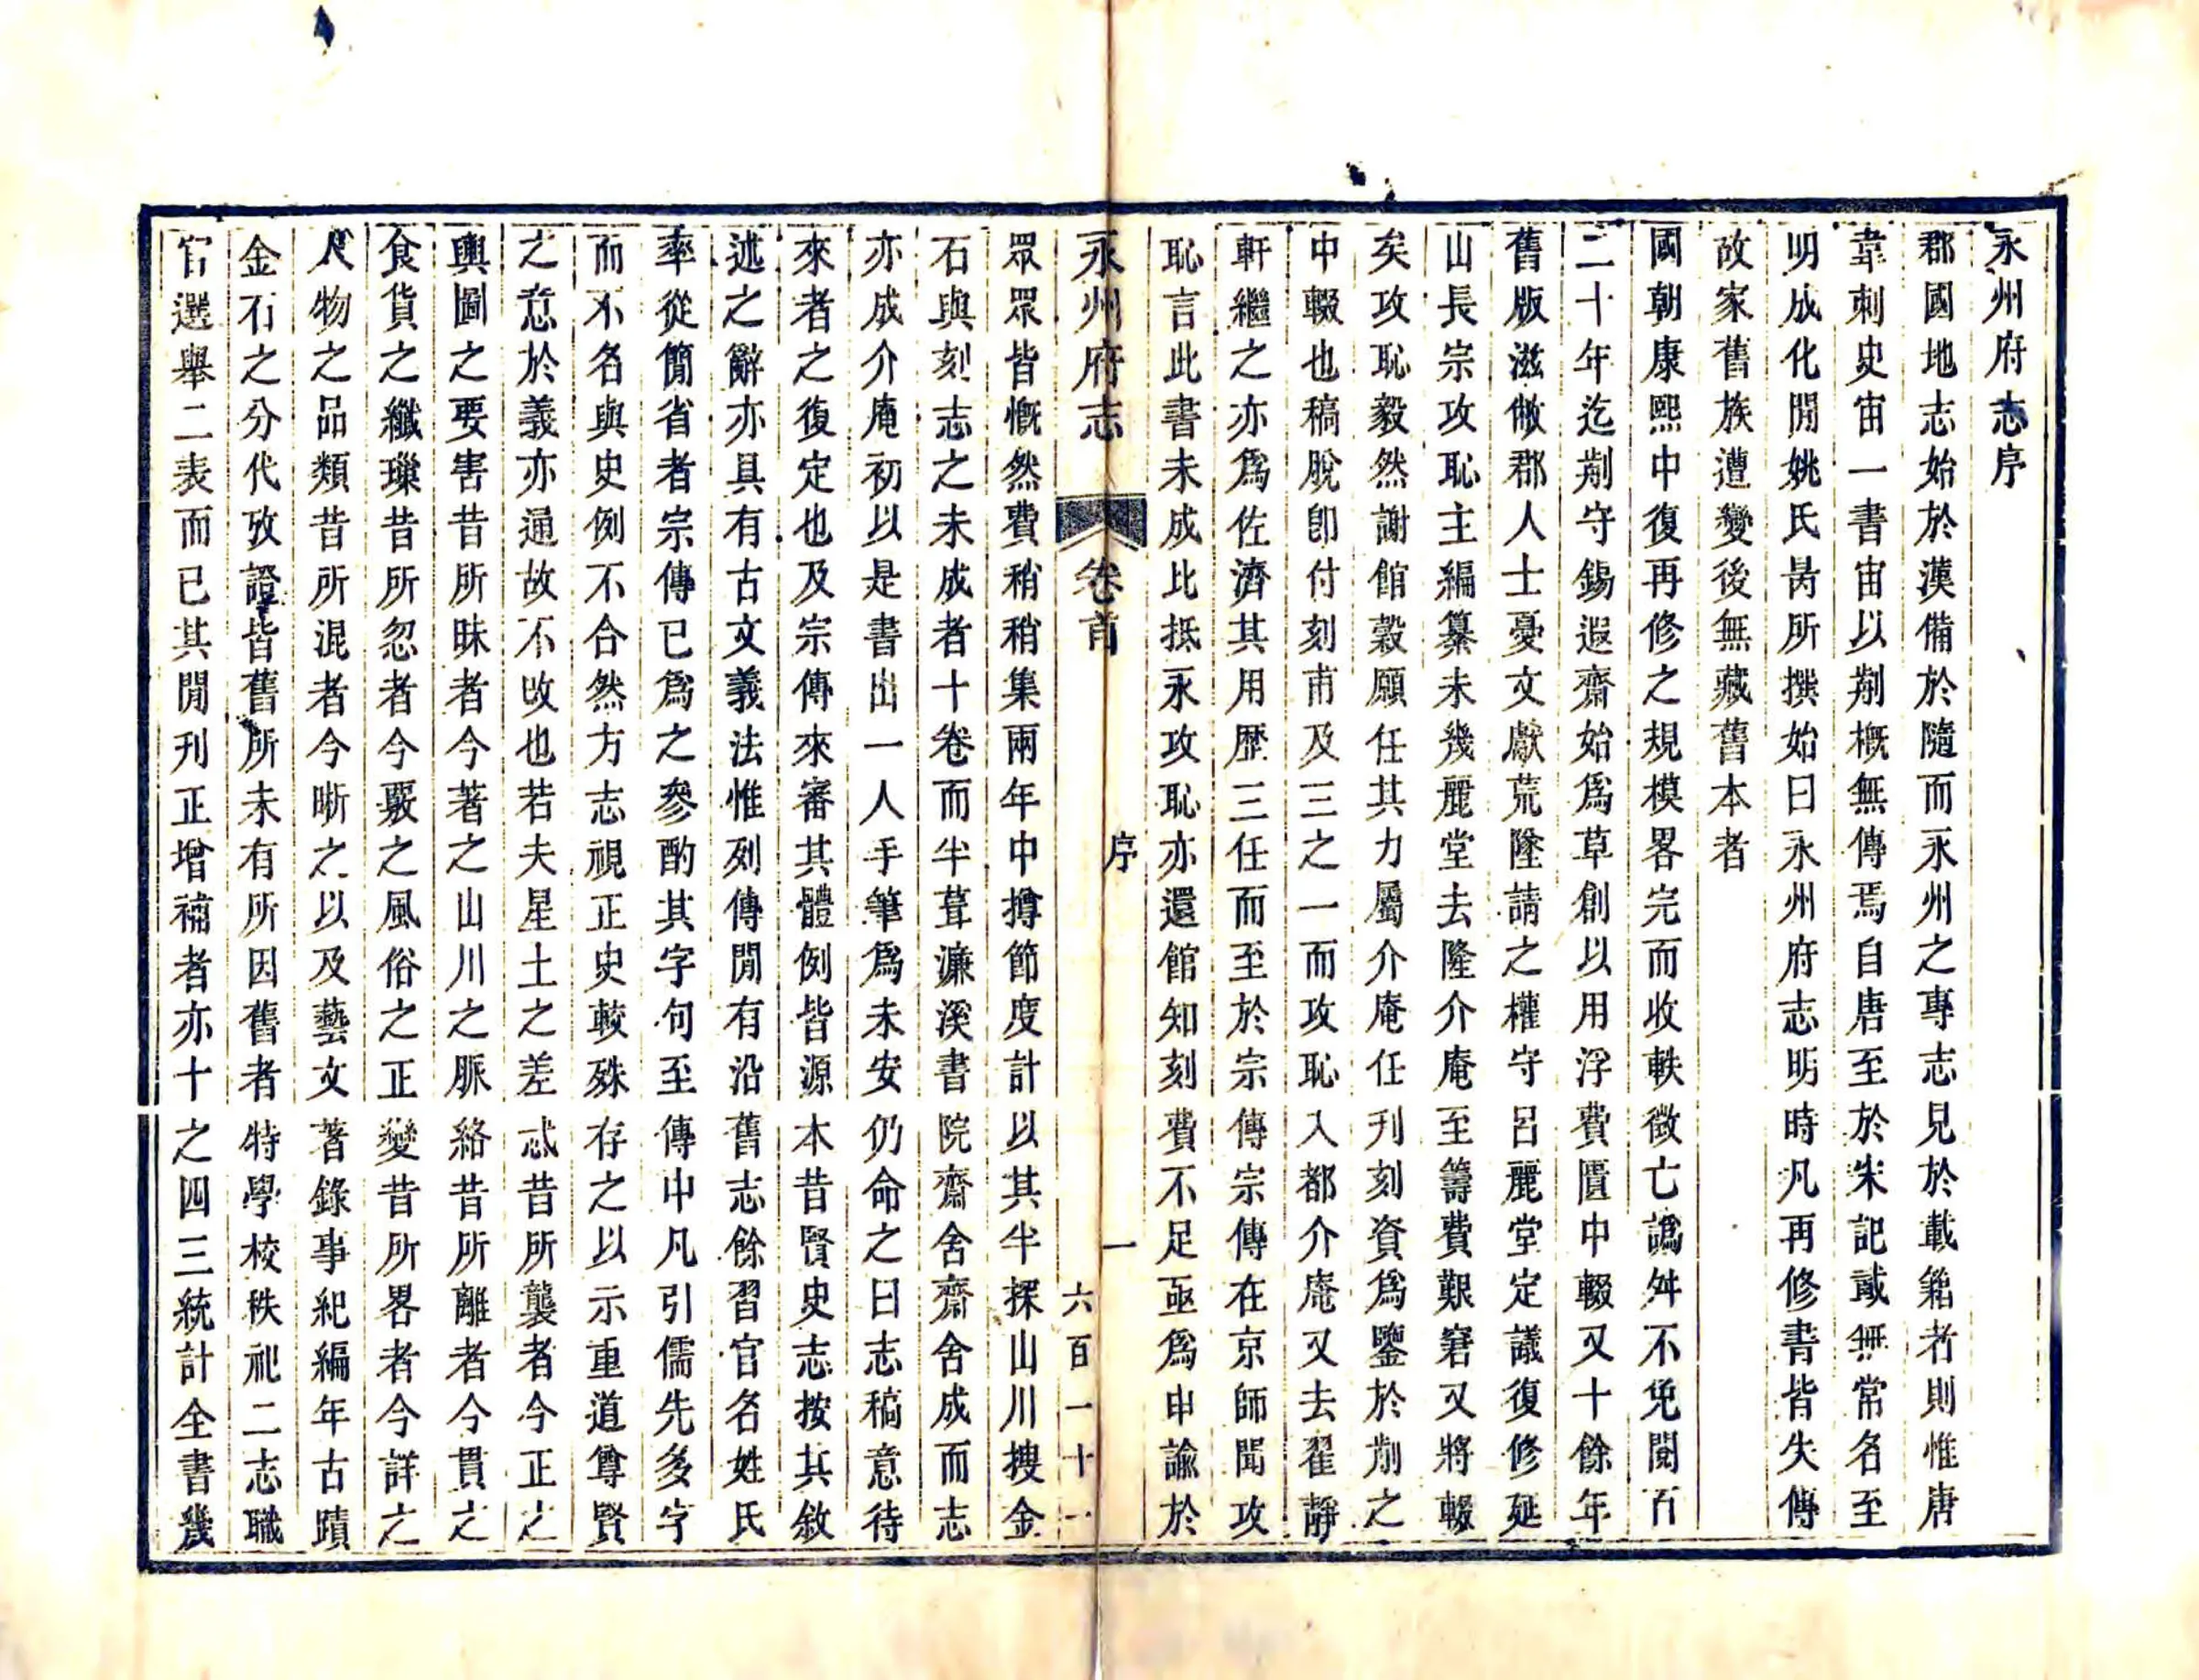 永州府志序
郡國地志始於漢備於隨而永州之專志見於載籍者則惟唐
韋刺史宙一書宙以剏概無傳焉自唐至於朱記胾無常名至
明成化閒姚氏昺所撰始曰永州府志明時凡再修書皆失傳
故家舊族遭變後無藏舊本者
國朝康熙中復再修之規模畧完而收軼徵亡譌舛不免閱百
二十年迄剏守錫遐齋始爲草創以用浮費匱中輟又十餘年
舊版滋敝郡人士憂文獻荒墜請之權守呂麗堂定議復修延
山長宗攻恥主編纂未幾麗堂去隆介庵至籌費艱窘又將輟
矣攻恥毅然謝館穀願任其力屬介庵任刋刻資爲鑒於剏之
中輟也稿脫卽付刻甫及三之一而攻恥入都介庵又去翟靜
軒繼之亦爲佐濟其用歷三任而至於宗傳宗傳在京師聞攻
恥言此書未成比抵永攻恥亦還館知刻費不足亟爲申諭於
永州府志 卷首 序 一 六百一十一
眾眾皆慨然費稍稍集兩年中撙節度計以其半探山川搜金
石與刻志之未成者十卷而半葺濂溪書院齋舍齋舍成而志
亦成介庵初以是書出一人手筆爲未安仍命之曰志稿意待
來者之復定也及宗傳來審其體例皆源本昔賢史志按其敘
述之辭亦具有古文義法惟列傳閒有沿舊志餘習官名姓氏
率從簡省者宗傳已爲之參酌其字句至傳中凡引儒先多字
而不名與史例不合然方志視正史較殊存之以示重道尊賢
之意於義亦通故不改也若夫星土之差忒昔所襲者今正之
輿圖之要害昔所昧者今著之山川之脈絡昔所離者今貫之
食貨之纖璅昔所忽者今覈之風俗之正變昔所畧者今詳之
人物之品類昔所混者今晰之以及藝文著錄事紀編年古蹟
金石之分代攷證皆舊所未有所因舊者特學校秩祀二志職
官選舉二表而已其閒刋正增補者亦十之四三統計全書幾